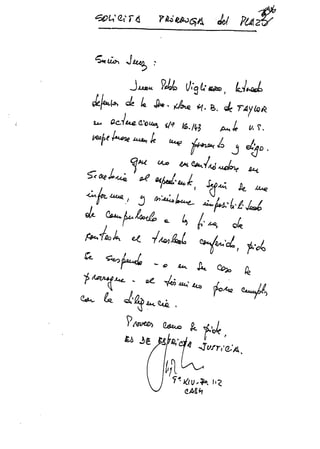 SOLICITA PRORROGA del PLAZO
Señor Juez:
Juan Pablo Vigliero, letrado
defensor de la Sra. Nora M. B. de TAYLOR
en actuaciones nº 16.143 ante U.S.
respetuosamente me presento y digo.
Que no encontrándose en
Secretaría el expediente, según se me
informa, y viéndome imposibilitado
de compulsarlo a los fines de
contestar el traslado conferido, pido
se suspenda - o en su caso se
prorrogue - el término para cumplir
con la diligencia.
Proveer como se pide,
ES DE ESTRICTA JUSTICIA.
Tº XIV - Fº 112
CASM